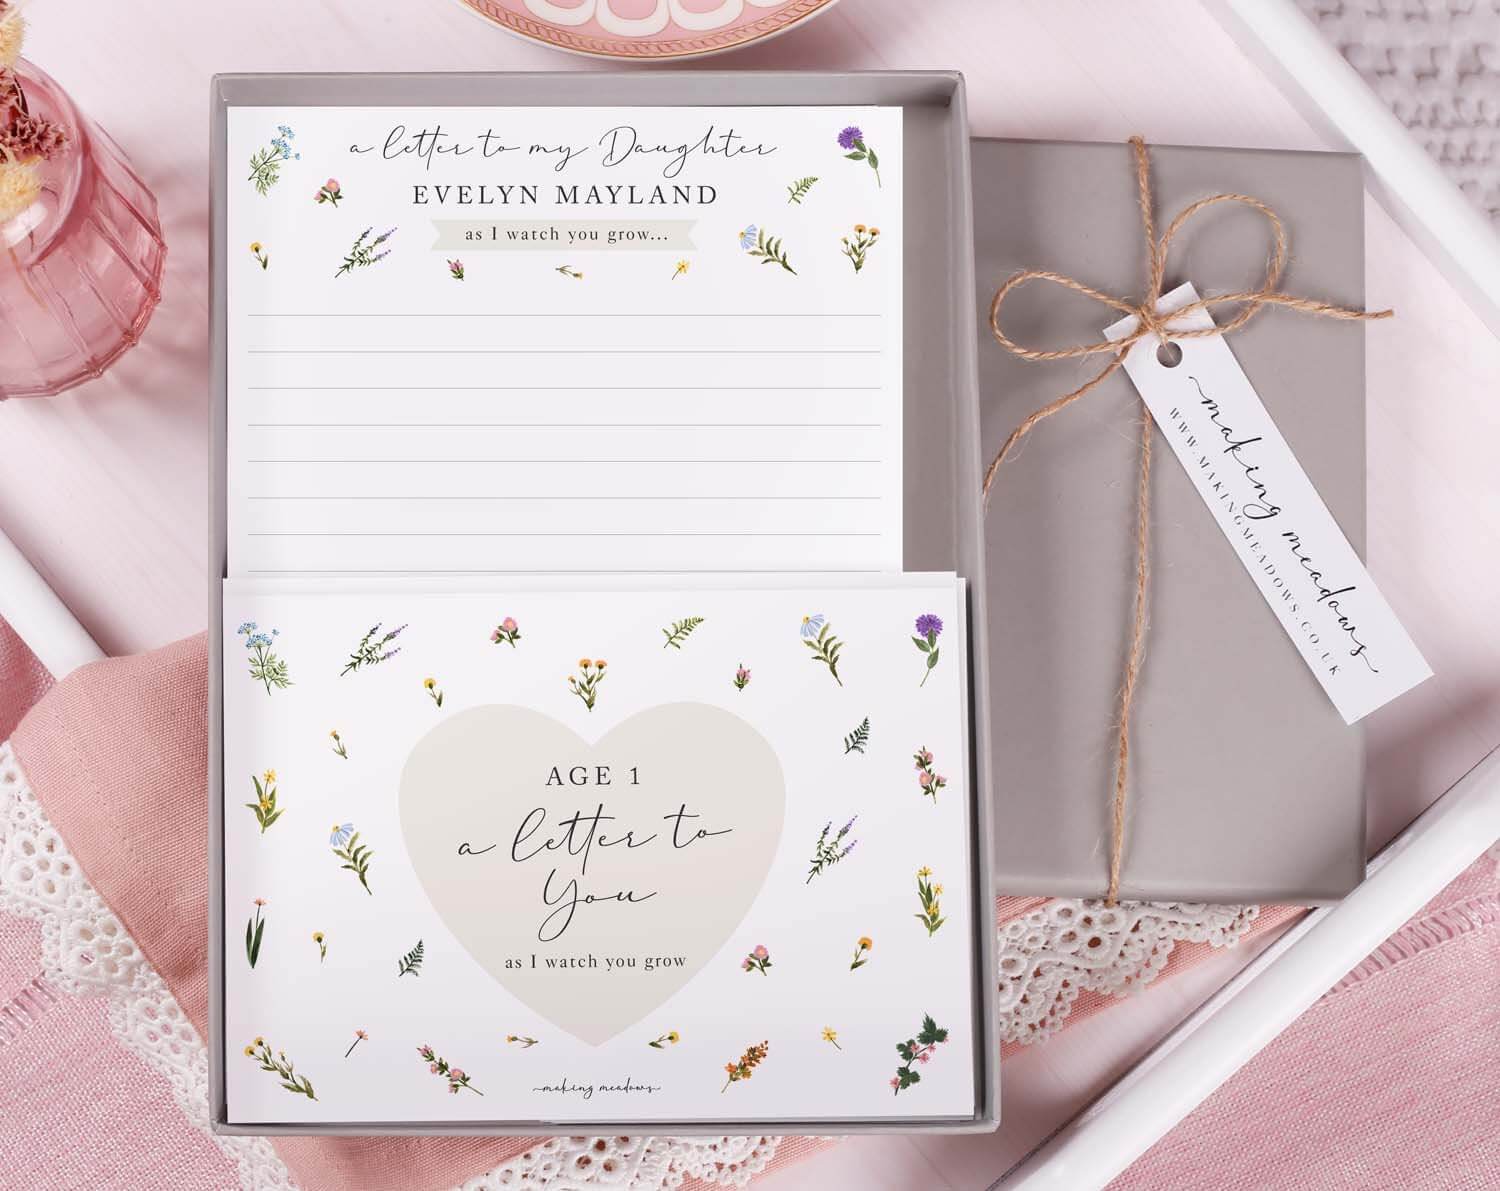 a letter to my Daughter
EVELYN MAYLAND
as I watch you grow...
AGE 1
a letter to
You
as I watch you grow
making meadows
making meadows
WWW.MAKINGMEADOWS.CO.UK